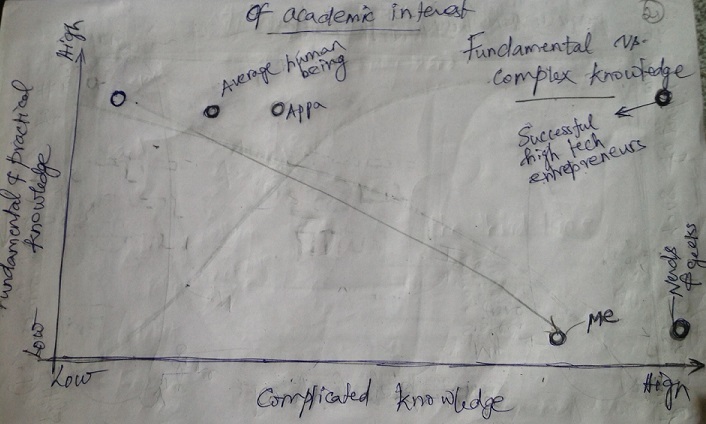 Of academic interest
2
Fundamental vs.
complex knowledge
High
Average human
being
Appa
Successful
high tech
entrepreneurs
Fundamental & practical
knowledge
Nerds
& geeks
Me
Low
Low
High
Complicated knowledge